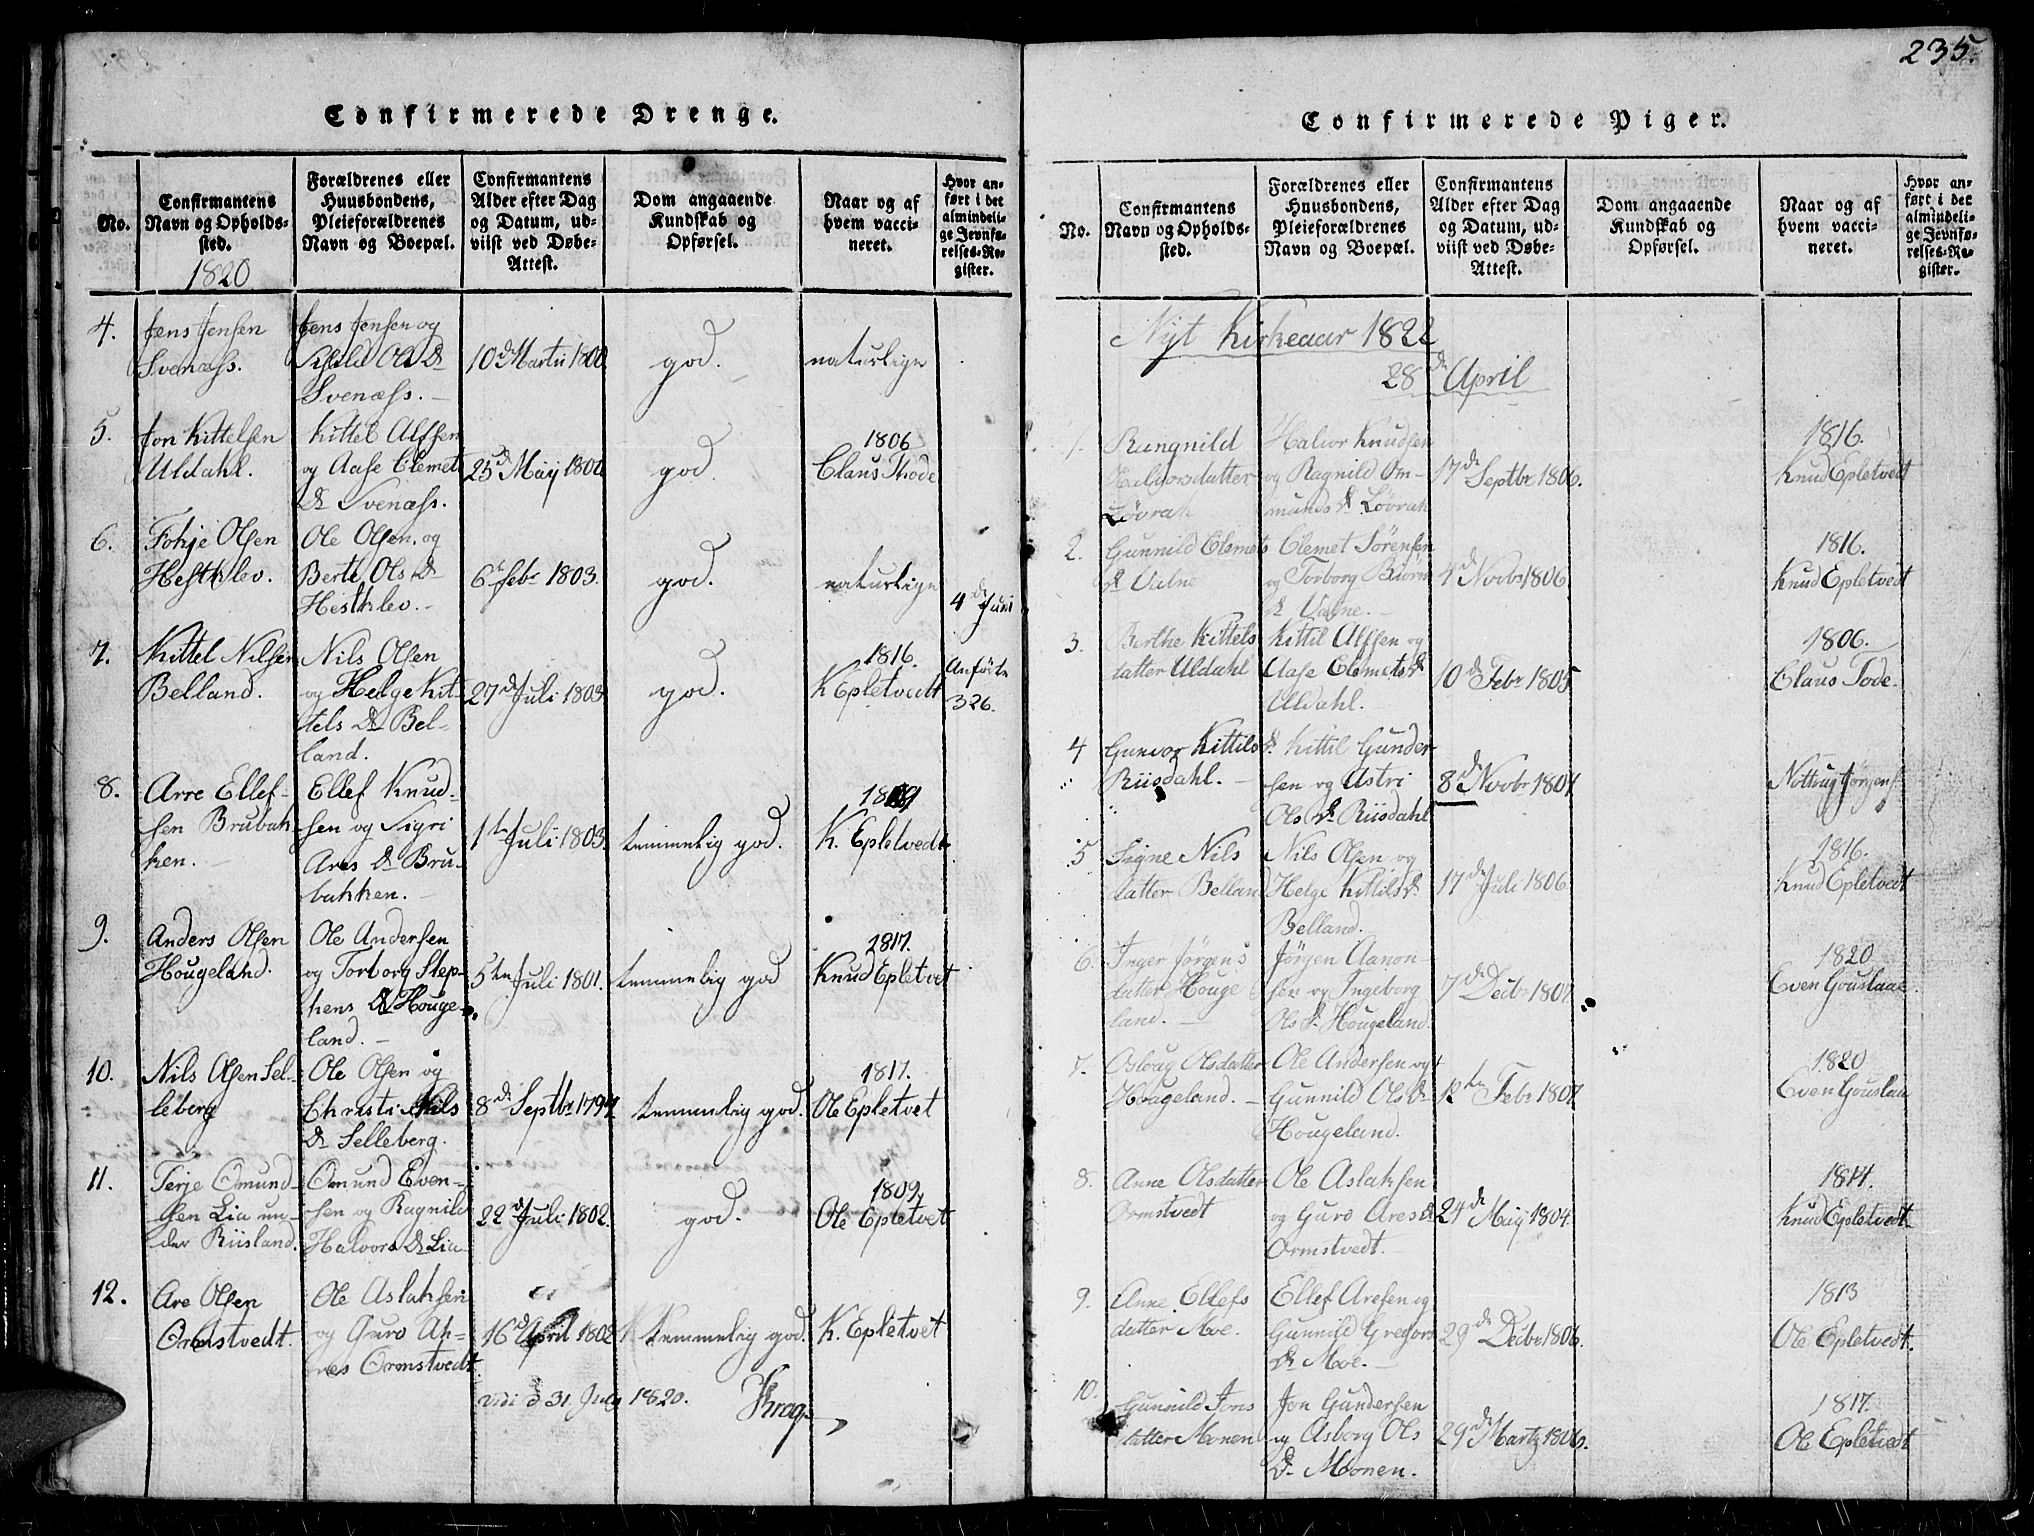 235.
Confirmerede Drenge.
No.
Confirmantens
Navn og Opholds-
sted.
1820
Forældrenes eller
Huusbondens,
Pleieforældrenes
Navn og Boepæl.
Confirmantens
Alder efter Dag
og Datum, ud-
viist ved Døbe-
Attest.
Dom angaaende
Kundskab og
Opførsel.
Naar og af
hvem vacci-
neret.
Hvor an-
ført i det
almindeli-
ge Jevnfø-
relses-Re-
gister.
4.
Jens Jensen
Svenæss.
Jens Jensen og
Ols D
Svenæss.
10 d Martii 1800.
god.
naturlige
5.
Jon Kittelsen
Uldahl.
Kittel Alfsen
og Aase Clemet
D Svenæss.
25 d Maij 1802
god.
1806
Claus Thode
6.
Fohje Olsen
Hesthlev.
Ole Olsen og
Berte Ols D
Hesthlev.
6 te Febr 1803.
god.
naturlige
4 de Juni
7.
Kittel Nilsen
Belland.
Nils Olsen
og Helge Kit-
tels D Bel-
land.
27 d Juli 1803
god.
1816.
K Epletvedt
Anførte
326.
8.
Arre Ellef-
sen Brubak-
ken.
Ellef Knud-
sen og Sigri
Ares D Bru-
bakken.
1 te Juli 1803.
temmelig god.
K. Epletvedt
9.
Anders Olsen
Hougeland.
Ole Andersen
og Torborg Step-
hens D Houge-
land.
5 te Juli 1801.
temmelig god
1817.
Knud Epletvet
10.
Nils Olsen Sel-
leberg
Ole Olsen og
Christi Nils
D Selleberg.
8 d Septbr 1797.
temmelig god.
1817.
Ole Epletvet
11.
Terje Omund-
sen Lia un-
der Riisland.
Omund Even-
sen og Ragnild
Halvors D Lia
22 d Juli 1802.
god.
1809.
Ole Epletvet
12.
Are Olsen
Ormstvedt.
Ole Aslaksen
og Guro Ah-
res Ormstvedt
16 d April 1802
temmelig god.
K. Epletvet
vidi d 31 July 1820. Krag
Confirmerede Piger.
No.
Confirmantens
Navn og Opholds-
sted.
Forældrenes eller
Huusbondens,
Pleieforældrenes
Navn og Boepæl.
Confirmantens
Alder efter Dag
og Datum, ud-
viist ved Døbe-
Attest.
Dom angaaende
Kundskab og
Opførsel.
Naar og af
hvem vacci-
neret.
Hvor an-
ført i det
almindeli-
ge Jevnfø-
relses-Re-
gister.
Nyt Kirkeaar 1822
28 d April
1.
Rungnild
Halvorsdatter
Løvrak
Halvor Knudsen
og Ragnild Om-
munds D Løvrak
17 de Septbr 1806.
1816.
Knud Epletvedt
2.
Gunnild Clemets
D Valne
Clemet Sørensen
og Torborg Biørn
D Valne.
4 d Novbr 1806
1816.
Knud Epletvedt
3.
Berthe Kittels
datter Uldahl
Kittil Alfsen og
Aase Clemets D
Uldahl.
10 d Febr 1805
1806.
Claus Tode.
4
Gunvor Kittils D.
Riisdahl.
Kittil Gunder-
sen og Astri
Ols D Riisdahl
8 d Novbr 1807.
5
Signe Nils
datter Belland
Nils Olsen og
Helge Kittils D
Belland.
17 de Juli 1806.
1816.
Knud Epletvedt
6.
Inger Jørgens
datter Houge
land.
Jørgen Aanon-
sen og Ingeborg
Ols D Hougeland.
7 de Decbr 1807.
1820
Even Gouslaae
7.
Oslaug Olsdatter
Hougeland.
Ole Andersen og
Gunnild Ols D
Hougeland.
12 te Febr 1807.
1820
Even Gouslaa
8.
Anne Olsdatter
Ormstvedt
Ole Aslaksen
og Guro Ares D
Ormstvedt
24 de Maij 1804.
1814.
Knud Epletvedt
9.
Anne Ellefs
datter Moe.
Ellef Aresen og
Gunnild Gregors
D Moe.
29 de Decbr 1806.
1813
Ole Epletvedt.
10.
Gunnild Jons
datter Monen
Jon Gundersen
og Asborg Ols
D Moonen.
29 de Martz 1806.
1817.
Ole Epletvedt